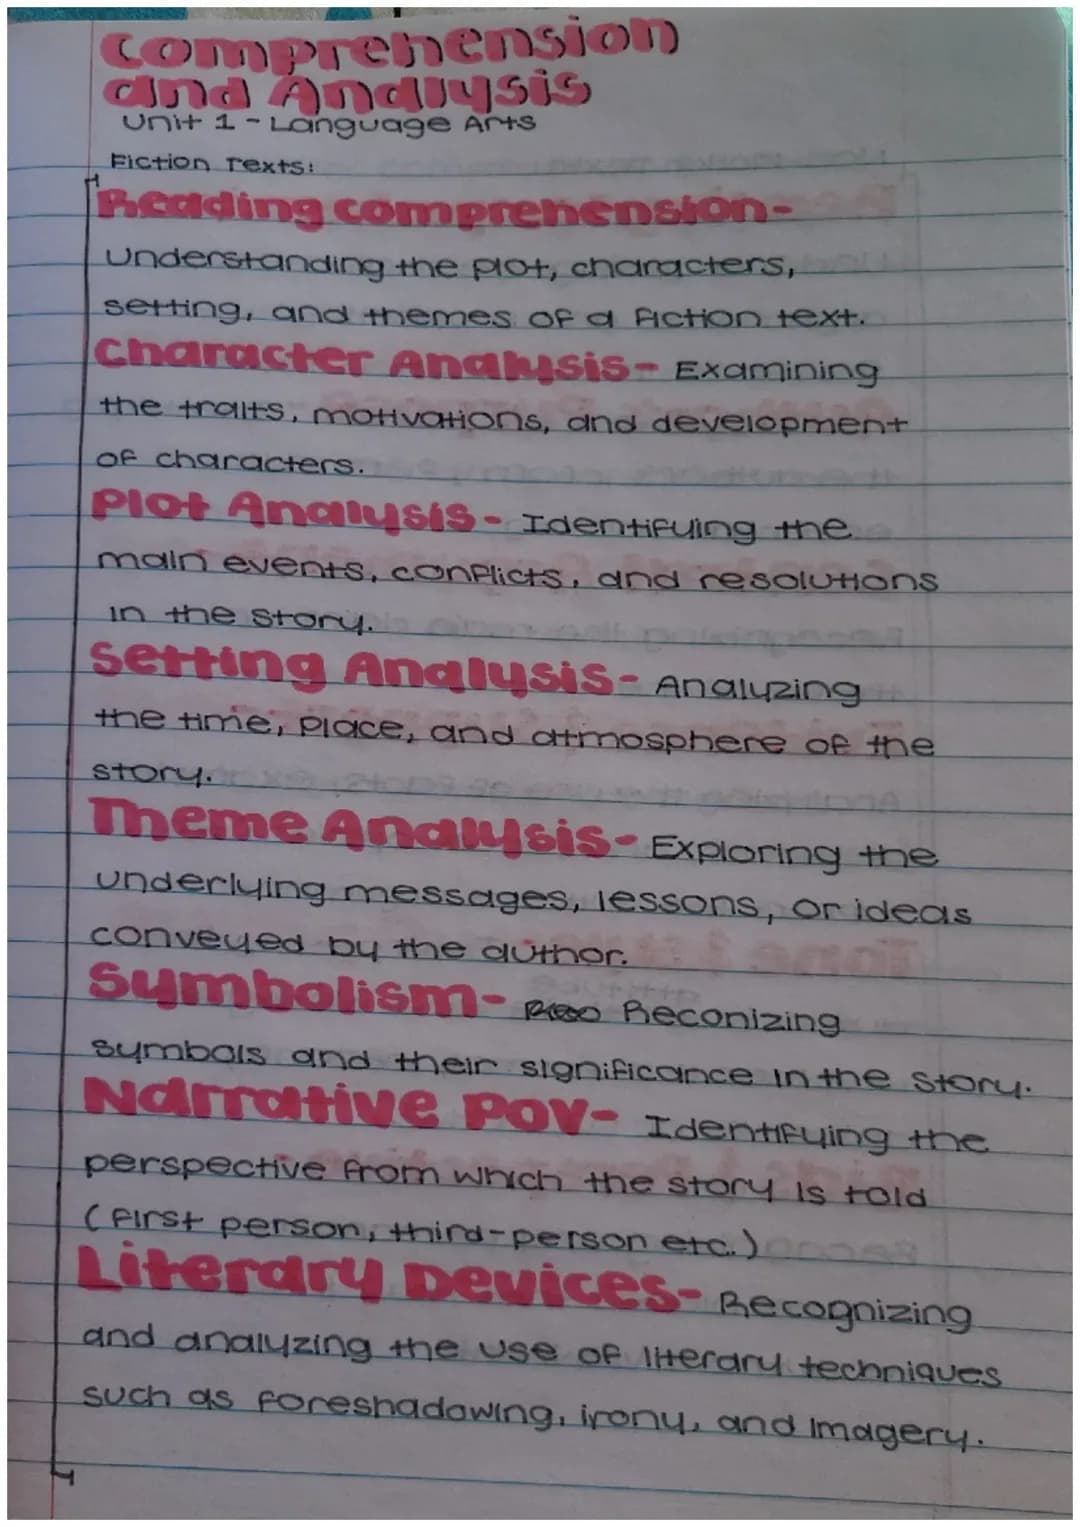 Comprehension
and Analysis
Unit 1 - Language Arts
Fiction Texts:
Reading comprehension-
Understanding the plot, characters,
setting, and themes of a fiction text.
Character Analysis- Examining
the traits, motivations, and development
of characters.
Plot Analysis- Identifying the
main events, conflicts, and resolutions
in the story.
Setting Analysis- Analyzing
the time, place, and atmosphere of the
story.
Theme Analysis- Exploring the
underlying messages, lessons, or ideas
conveyed by the author.
Symbolism- Reconizing
symbols and their significance in the story.
Narrative POV- Identifying the
perspective from which the story is told
(first person, third-person etc.)
Literary Devices- Recognizing
and analyzing the use of literary techniques
such as foreshadowing, irony, and imagery.